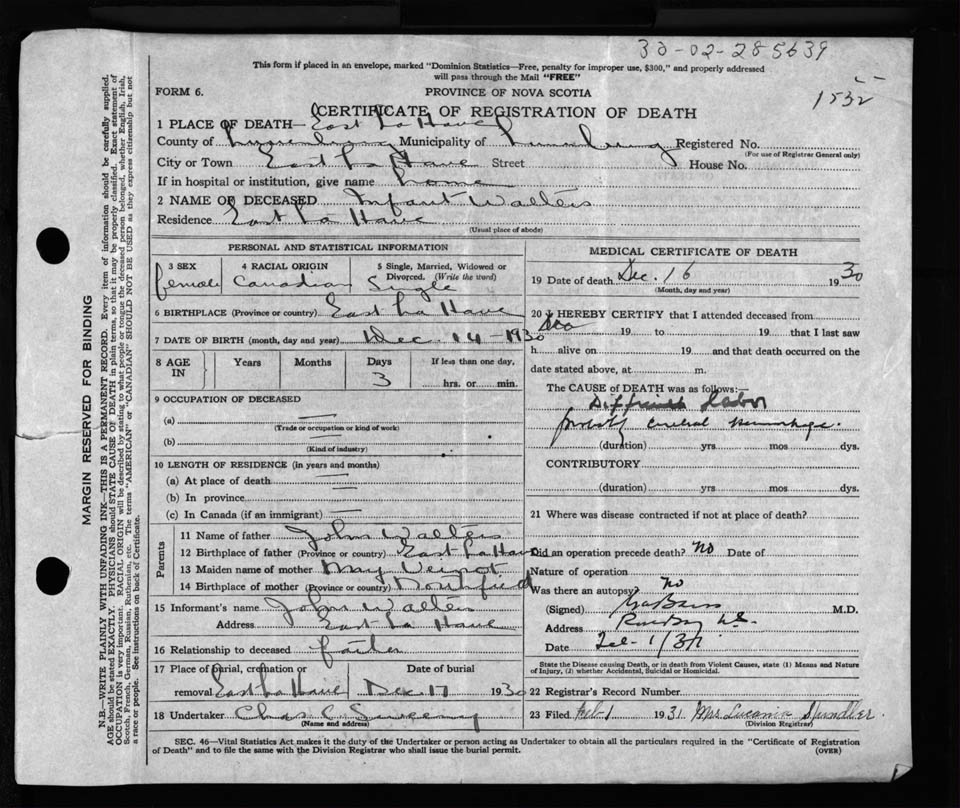 30-02-285639
This form if placed in an envelope, marked "Dominion Statistics—Free, penalty for improper use, $300," and properly addressed
will pass through the Mail "FREE"
FORM 6.
PROVINCE OF NOVA SCOTIA
1532
CERTIFICATE OF REGISTRATION OF DEATH
1 PLACE OF DEATH— East La Have
County of Lunenburg Municipality of Lunenburg Registered No.
(For use of Registrar General only)
City or Town East La Have Street House No.
If in hospital or institution, give name home
2 NAME OF DECEASED Infant Walters
Residence East La Have
(Usual place of abode)
MARGIN RESERVED FOR BINDING
N.B.—WRITE PLAINLY WITH UNFADING INK—THIS IS A PERMANENT RECORD. Every item of information should be carefully supplied.
AGE should be stated EXACTLY. PHYSICIANS should STATE CAUSE OF DEATH in plain terms, so that it may be properly classified. Exact statement of
OCCUPATION is very important. RACIAL ORIGIN will be described by stating to what people or tongue the deceased person belonged, whether English, Irish,
Scotch, French, German, Russian, Ruthenian, etc. The terms "AMERICAN" or "CANADIAN" SHOULD NOT BE USED as they express citizenship but not
a race or people. See instructions on back of Certificate.
PERSONAL AND STATISTICAL INFORMATION
3 SEX
female
4 RACIAL ORIGIN
Canadian
5 Single, Married, Widowed or
Divorced. (Write the word)
Single
6 BIRTHPLACE (Province or country) East La Have
7 DATE OF BIRTH (month, day and year) Dec. 14 - 1930
8 AGE
IN
Years
Months
Days
3
If less than one day,
hrs. or min.
9 OCCUPATION OF DECEASED
(a)
(Trade or occupation or kind of work)
(b)
(Kind of industry)
10 LENGTH OF RESIDENCE (in years and months)
(a) At place of death
(b) In province
(c) In Canada (if an immigrant)
Parents
11 Name of father John Walters
12 Birthplace of father (Province or country) East La Have
13 Maiden name of mother May Veinot
14 Birthplace of mother (Province or country) Northfield
15 Informant's name John Walters
Address East La Have
16 Relationship to deceased father
17 Place of burial, cremation or
removal East La Have
Date of burial
Dec 17 1930
18 Undertaker Chas C Sweeny
(Name and address)
MEDICAL CERTIFICATE OF DEATH
19 Date of death Dec. 16 1930
(Month, day and year)
20 I HEREBY CERTIFY that I attended deceased from
19 to 19 that I last saw
h alive on 19 and that death occurred on the
date stated above, at m.
The CAUSE of DEATH was as follows:—
Difficult labor
probably cerebral hemorrhage.
(duration) yrs mos dys.
CONTRIBUTORY
(duration) yrs mos dys.
21 Where was disease contracted if not at place of death?
Did an operation precede death? No Date of
Nature of operation
Was there an autopsy? no
(Signed) M.D.
Address Rose Bay N.S.
Date Feb - 1/31
State the Disease causing Death, or in death from Violent Causes, state (1) Means and Nature
of Injury, (2) whether Accidental, Suicidal or Homicidal.
22 Registrar's Record Number
23 Filed Feb 1 1931 Mrs Spindler.
(Division Registrar)
SEC. 46—Vital Statistics Act makes it the duty of the Undertaker or person acting as Undertaker to obtain all the particulars required in the "Certificate of Registration
of Death" and to file the same with the Division Registrar who shall issue the burial permit.
(OVER)